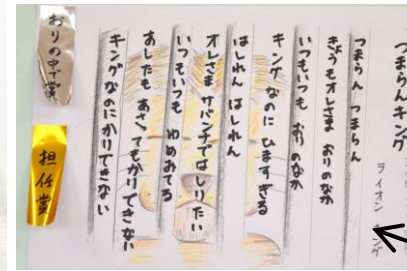 つまらんキング
ライオン キング
つまらん つまらん
きょうもオレさま おりのなか
いつもいつも おりのなか
キングなのに ひますぎる
はしれん はしれん
オレさま サバンナではしりたい
いつもいつも ゆめみてる
あしたも あさってもかりできない
キングなのにかりできない
おりの中で賞
担任賞